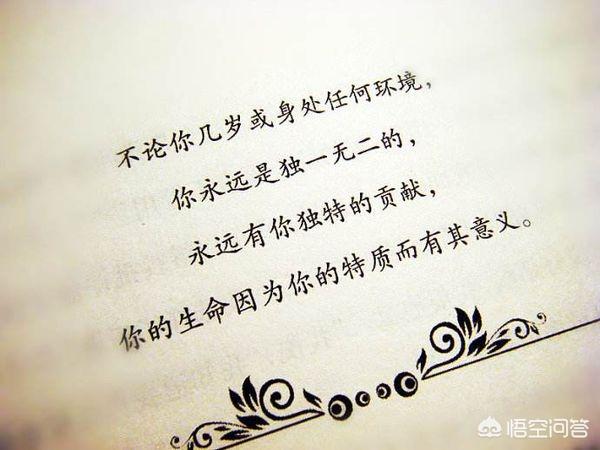 不论你几岁或身处任何环境，
你永远是独一无二的，
永远有你独特的贡献，
你的生命因为你的特质而有其意义。
悟空问答